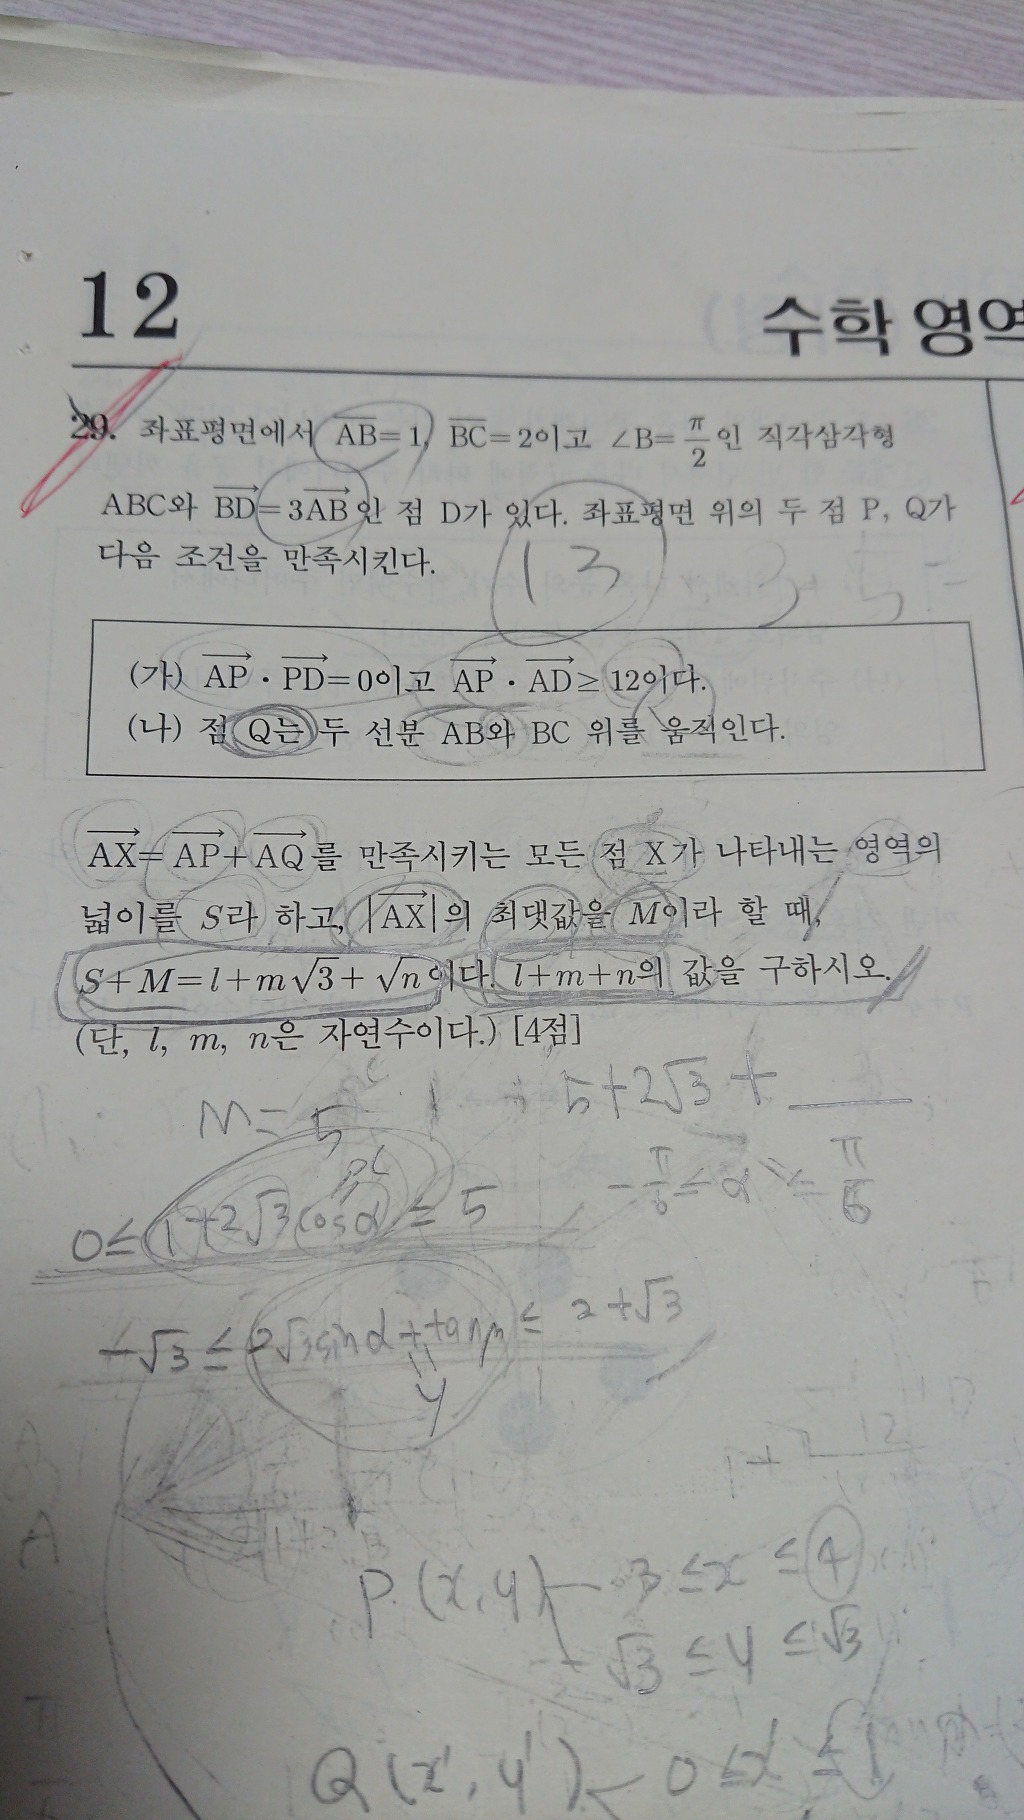 12
수학 영역
29. 좌표평면에서 AB=1, BC=2이고 ∠B=π/2인 직각삼각형
ABC와 BD=3AB인 점 D가 있다. 좌표평면 위의 두 점 P, Q가
다음 조건을 만족시킨다.
13
(가) AP·PD=0이고 AP·AD≥12이다.
(나) 점 Q는 두 선분 AB와 BC 위를 움직인다.
AX=AP+AQ를 만족시키는 모든 점 X가 나타내는 영역의
넓이를 S라 하고, |AX|의 최댓값을 M이라 할 때,
S+M=l+m√3+√n이다. l+m+n의 값을 구하시오.
(단, l, m, n은 자연수이다.) [4점]
M= 5
5+2√3+
-π/6≤α≤π/6
0≤1+2√3cosα≤5
-√3≤2√3sinα+tan≤2+√3
y
A
P(x,y) 3≤x≤4
-√3≤y≤√3
Q(x',y') 0≤x'≤1